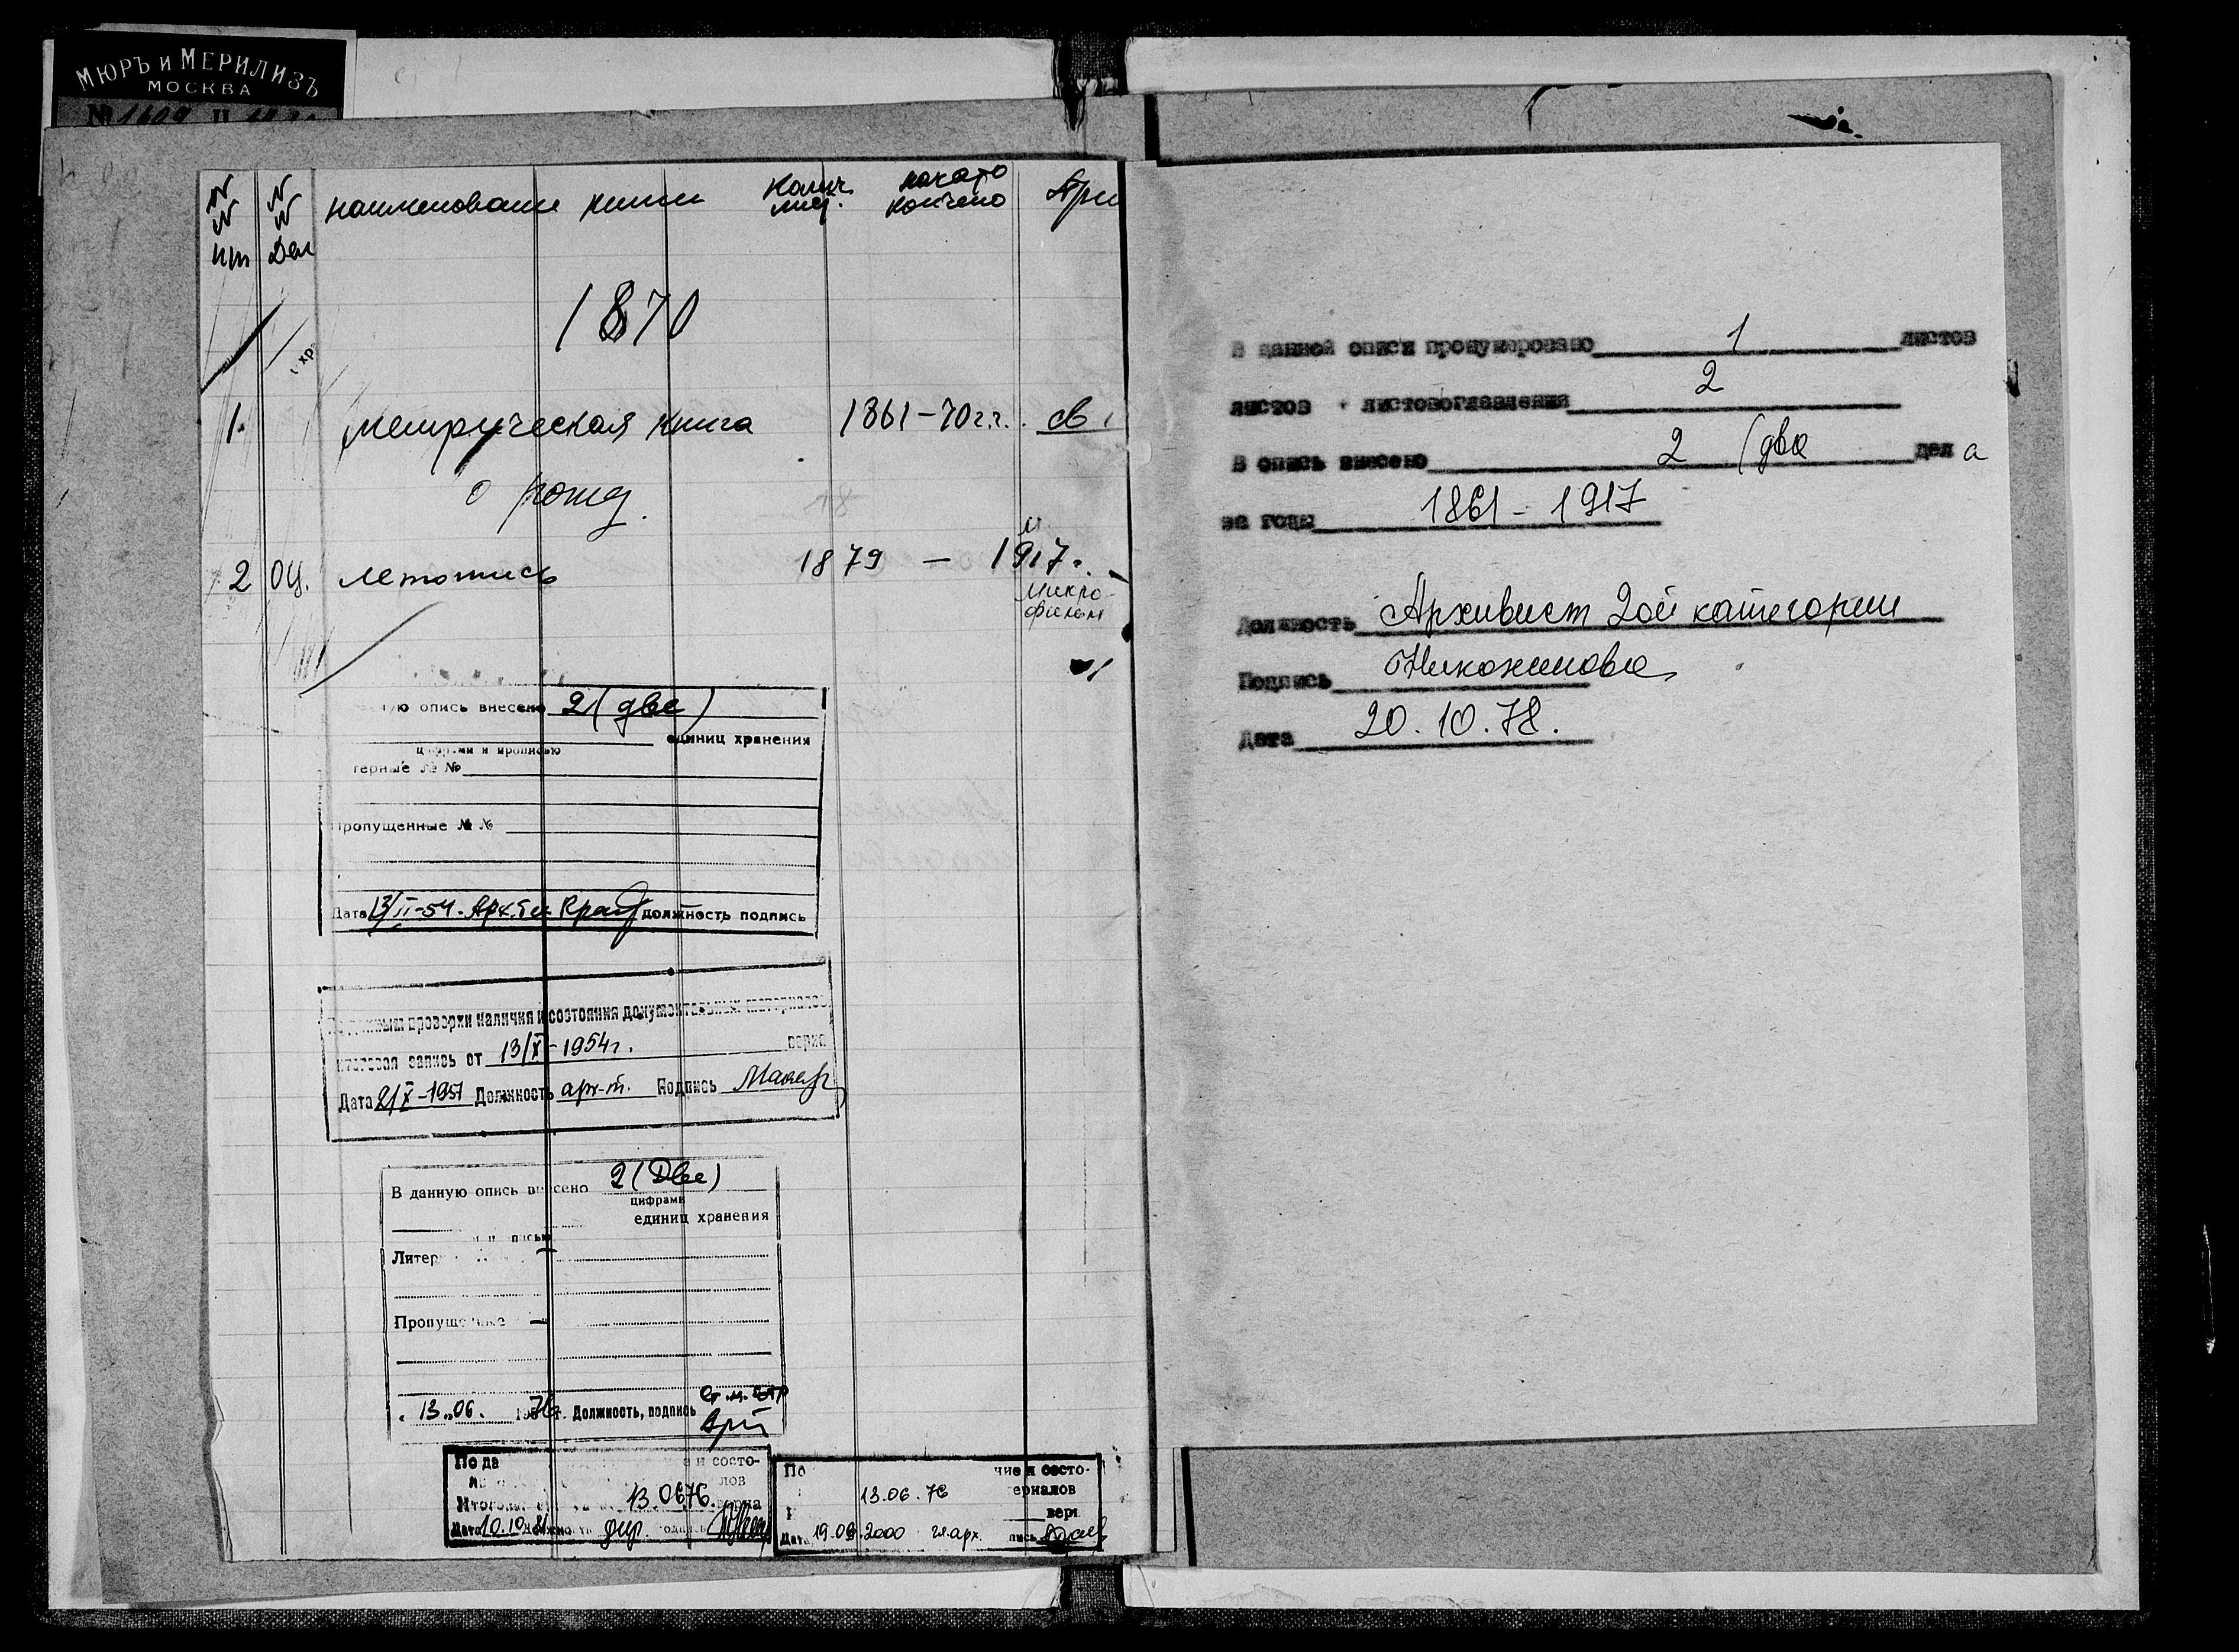 МЮРЪ И МЕРИЛИЗЪ
МОСКВА
№ 1609
N N пп
N N Дел
наименование книги
Колич. лис.
начато кончено
При
1870
хр
1. метрическая книга 1861-70 г.г. св 1
о рожд.
2 Оц. летопись 1879 – 1917 г.
Микро-
фильм
ую опись внесено 2 (две)
единиц хранения
цифрами и прописью
терные № №
Пропущенные № №
Дата 13/II-54. должность подпись
данным проверки наличия и состояния документальных материалов
итоговая запись от 13/X-1954 г. верна
Дата 2/X-1957 Должность арх-т. Подпись
В данную опись внесено 2 (Две)
цифрами
единиц хранения
писью
Литер
Пропуще
„ 13 „ 06. 1976 г. Должность, подпись
По да и состо-
лов
Итогов 13.06.76. верна
Дата 10.10.81 должность дир.
По чие и состо-
13.06.76 ериалов
верн
Дата 19.09.2000 гл.арх. пись
В данной описи пронумеровано 1 листов
листов + листовоглавления 2
В опись внесено 2 (два дел а
за годы 1861 - 1917
Должность Архивист 2ой категории
Подпись
Дата 20.10.78.